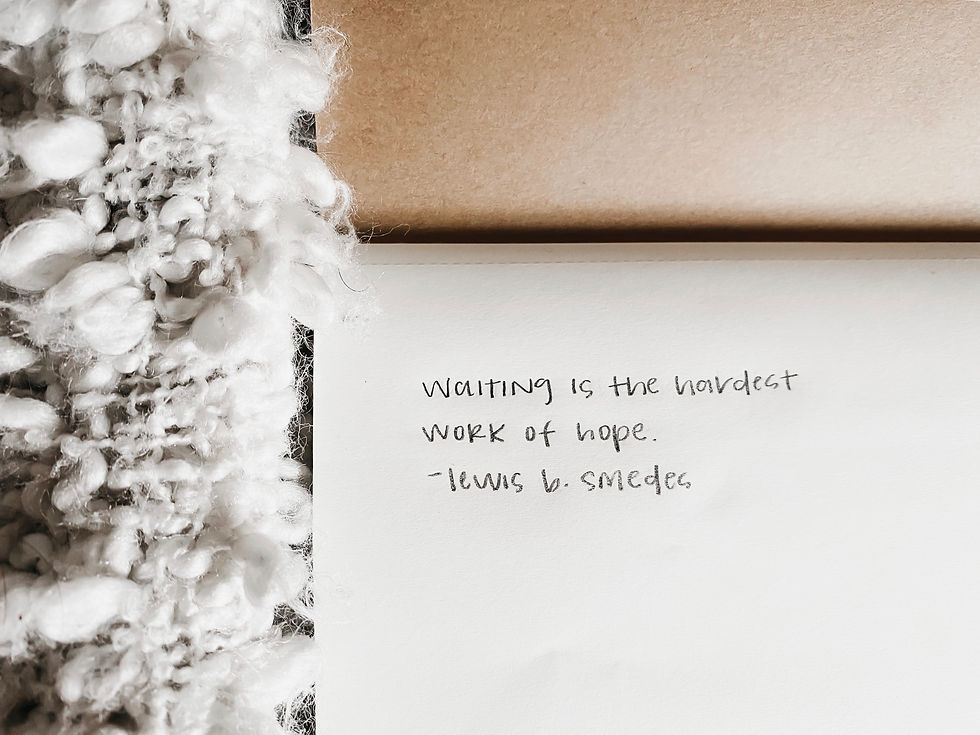 waiting is the hardest
work of hope.
-lewis b. smedes